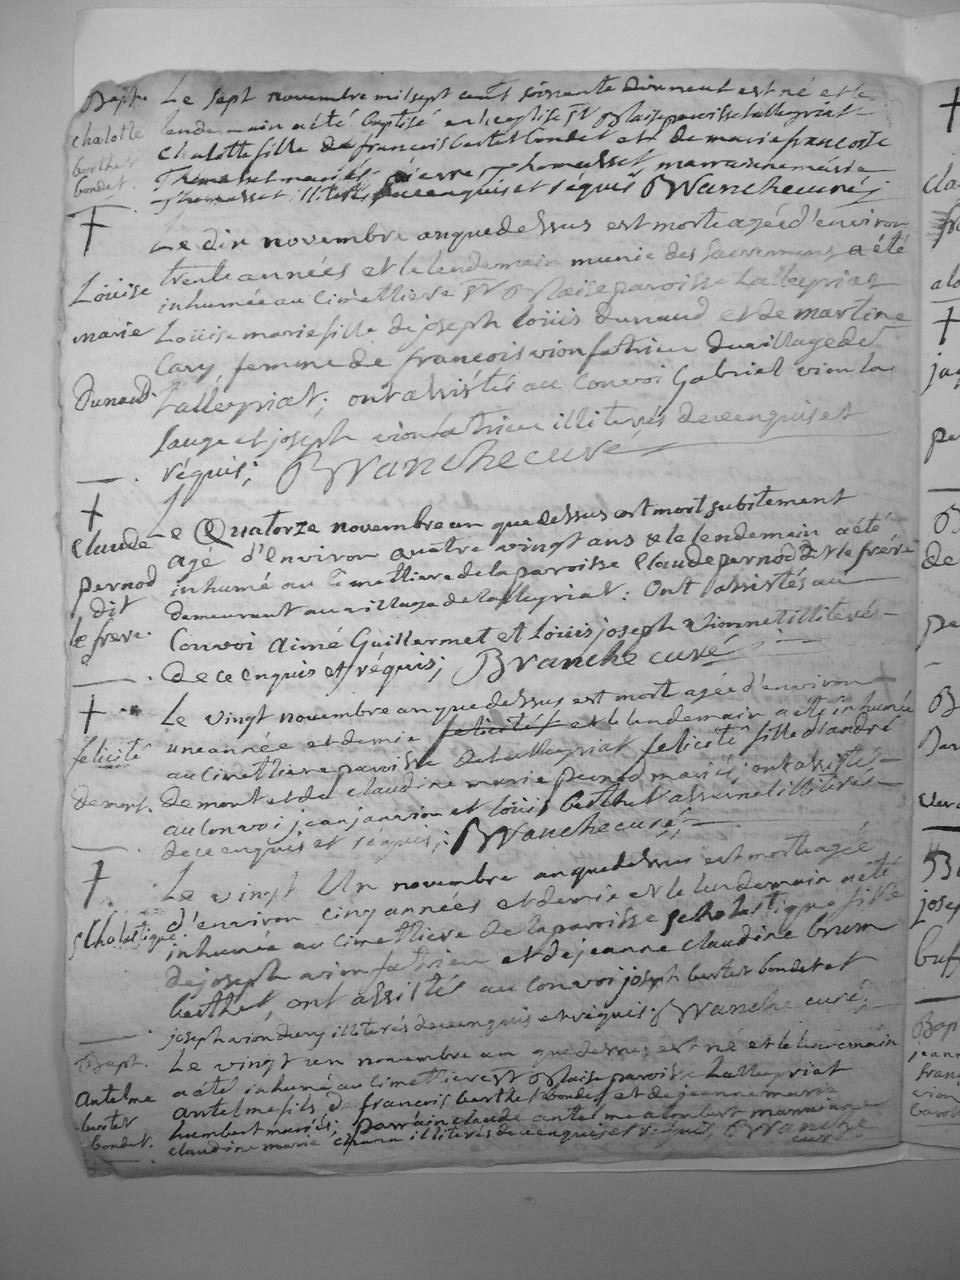 Bapt. Le sept novembre mil sept cent soixante dixneuf est né et le
chalotte lendemain a été baptisé en leglise St Blaise paroisse Lalleyriat
berthet chalotte fille de francois berthet bondet et de marie francoise
bondet. Thomasset mariés, pierre Thomasset marraine marie
Thomasset illiterés de ce enquis et réquis Branche curé
† Le dix novembre an que dessus est morte agée d'environ
Louise trente années et le lendemain munie des sacremens a été
inhumée au cimettiere St Blaise paroisse Lalleyriat
marie Loüise marie fille de joseph loüis dunaud et de martine
Cary femme de françois vion fatrieu du village de
Dunaud. Lalleyriat; ont assistés au convoi Gabriel vion la
sauge et joseph vion fatrieu illiterés de ce enquis et
réquis; Branche curé
†
Claude Le Quatorze novembre an que dessus est mort subitement
agé d'environ quatre vingt ans & le lendemain a été
pernod inhumé au cimettiere de la paroisse Claude pernod dit le frére
dit demeurant au village de lalleyriat: Ont assistés au
le frere. Convoi Aimé Guillermet et Loüis joseph vionnet illiterés
de ce enquis et réquis; Branche curé
† Le vingt novembre an que dessus est morte agée d'environ
felicité une année et demie felicité et le lendemain a été inhumée
au cimettiere paroisse de lalleyriat felicité fille d'andré
demont. demont et de claudine marie pernod mariés; ont assistés
au convoi jean janvion et loüis berthet illiterés
de ce enquis et réquis; Branche curé;
† Le vingt Un novembre an que dessus est morte agée
d'environ cinq années et demie et le lendemain a été
scholastique inhumée au cimettiere de la paroisse scholastique fille
de joseph vion fatrieu et de jeanne claudine brun
berthet, ont assistés au convoi joseph berthet bondet et
joseph vion illiterés de ce enquis et réquis. Branche curé;
Bapt. Le vingt un novembre an que dessus est né et le lendemain
antelme a été inhumé au cimettiere St Blaise paroisse Lalleyriat
bertet antelme fils de francois berthet bondet et de jeanne marie
bondet. humbert mariés; parrain claude antelme marraine
claudine marie illiterés de ce enquis et réquis, Branche
curé